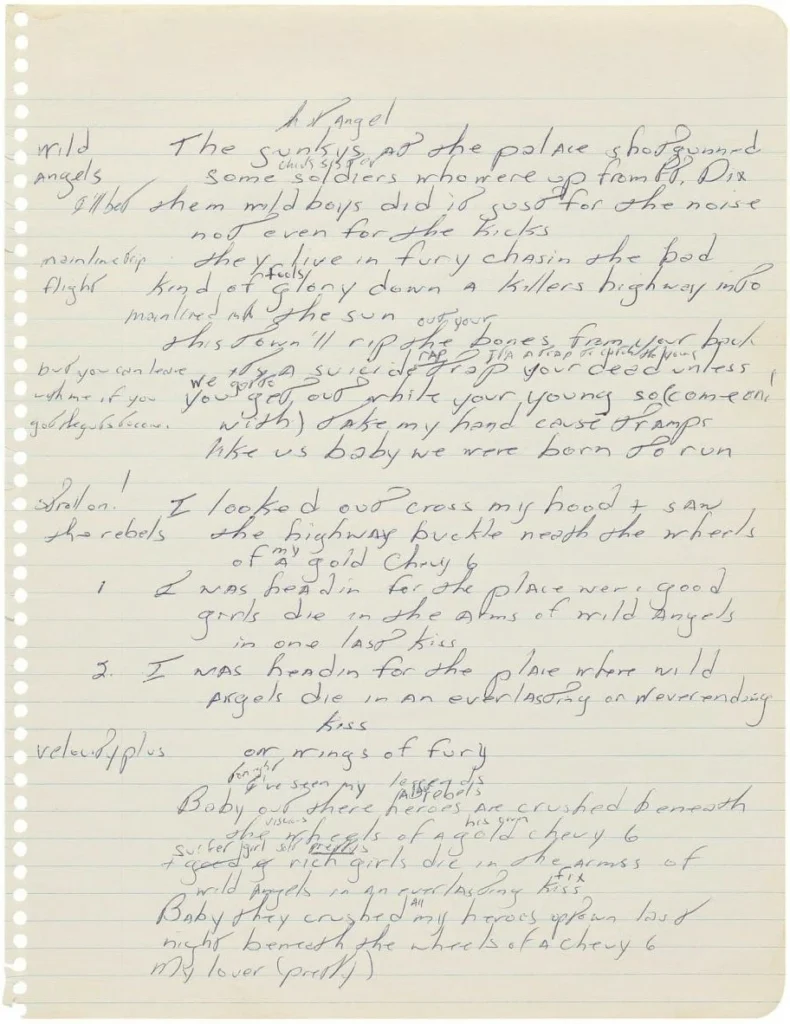 Angel
wild The junkys at the palace shotgunned
Angels some soldiers who were up from Ft. Dix
I'll bet them wild boys did it just for the noise
not even for the kicks
mainline trip they live in fury chasin the bad
flight kind of fools glory down A Killers highway into
mainlined into the sun out your
this town'll rip the bones from your back
but you can leave its A suicide trap RAP ITS A TRAP to catch the young your dead unless
with me if you we gotta you get out while your young so (come on!
got the guts to come. with) take my hand cause tramps
like us baby we were born to run
stroll on! I looked out cross my hood + saw
the rebels the highway buckle neath the wheels
of A my gold Chevy 6
1 I was headin for the place were good
girls die in the Arms of wild Angels
in one last kiss
2. I was headin for the place where wild
Angels die in An everlasting or Neverending
kiss
velocity plus on wings of fury
tonight I've seen my legends
Baby out there heroes And rebels Are crushed beneath
the wheels of A his own gold chevy 6
+ good rich girls die in the armss of
wild Angels in An everlasting kiss fix
Baby they crushed All my heroes uptown last
night beneath the wheels of A Chevy 6
My lover (pretty)